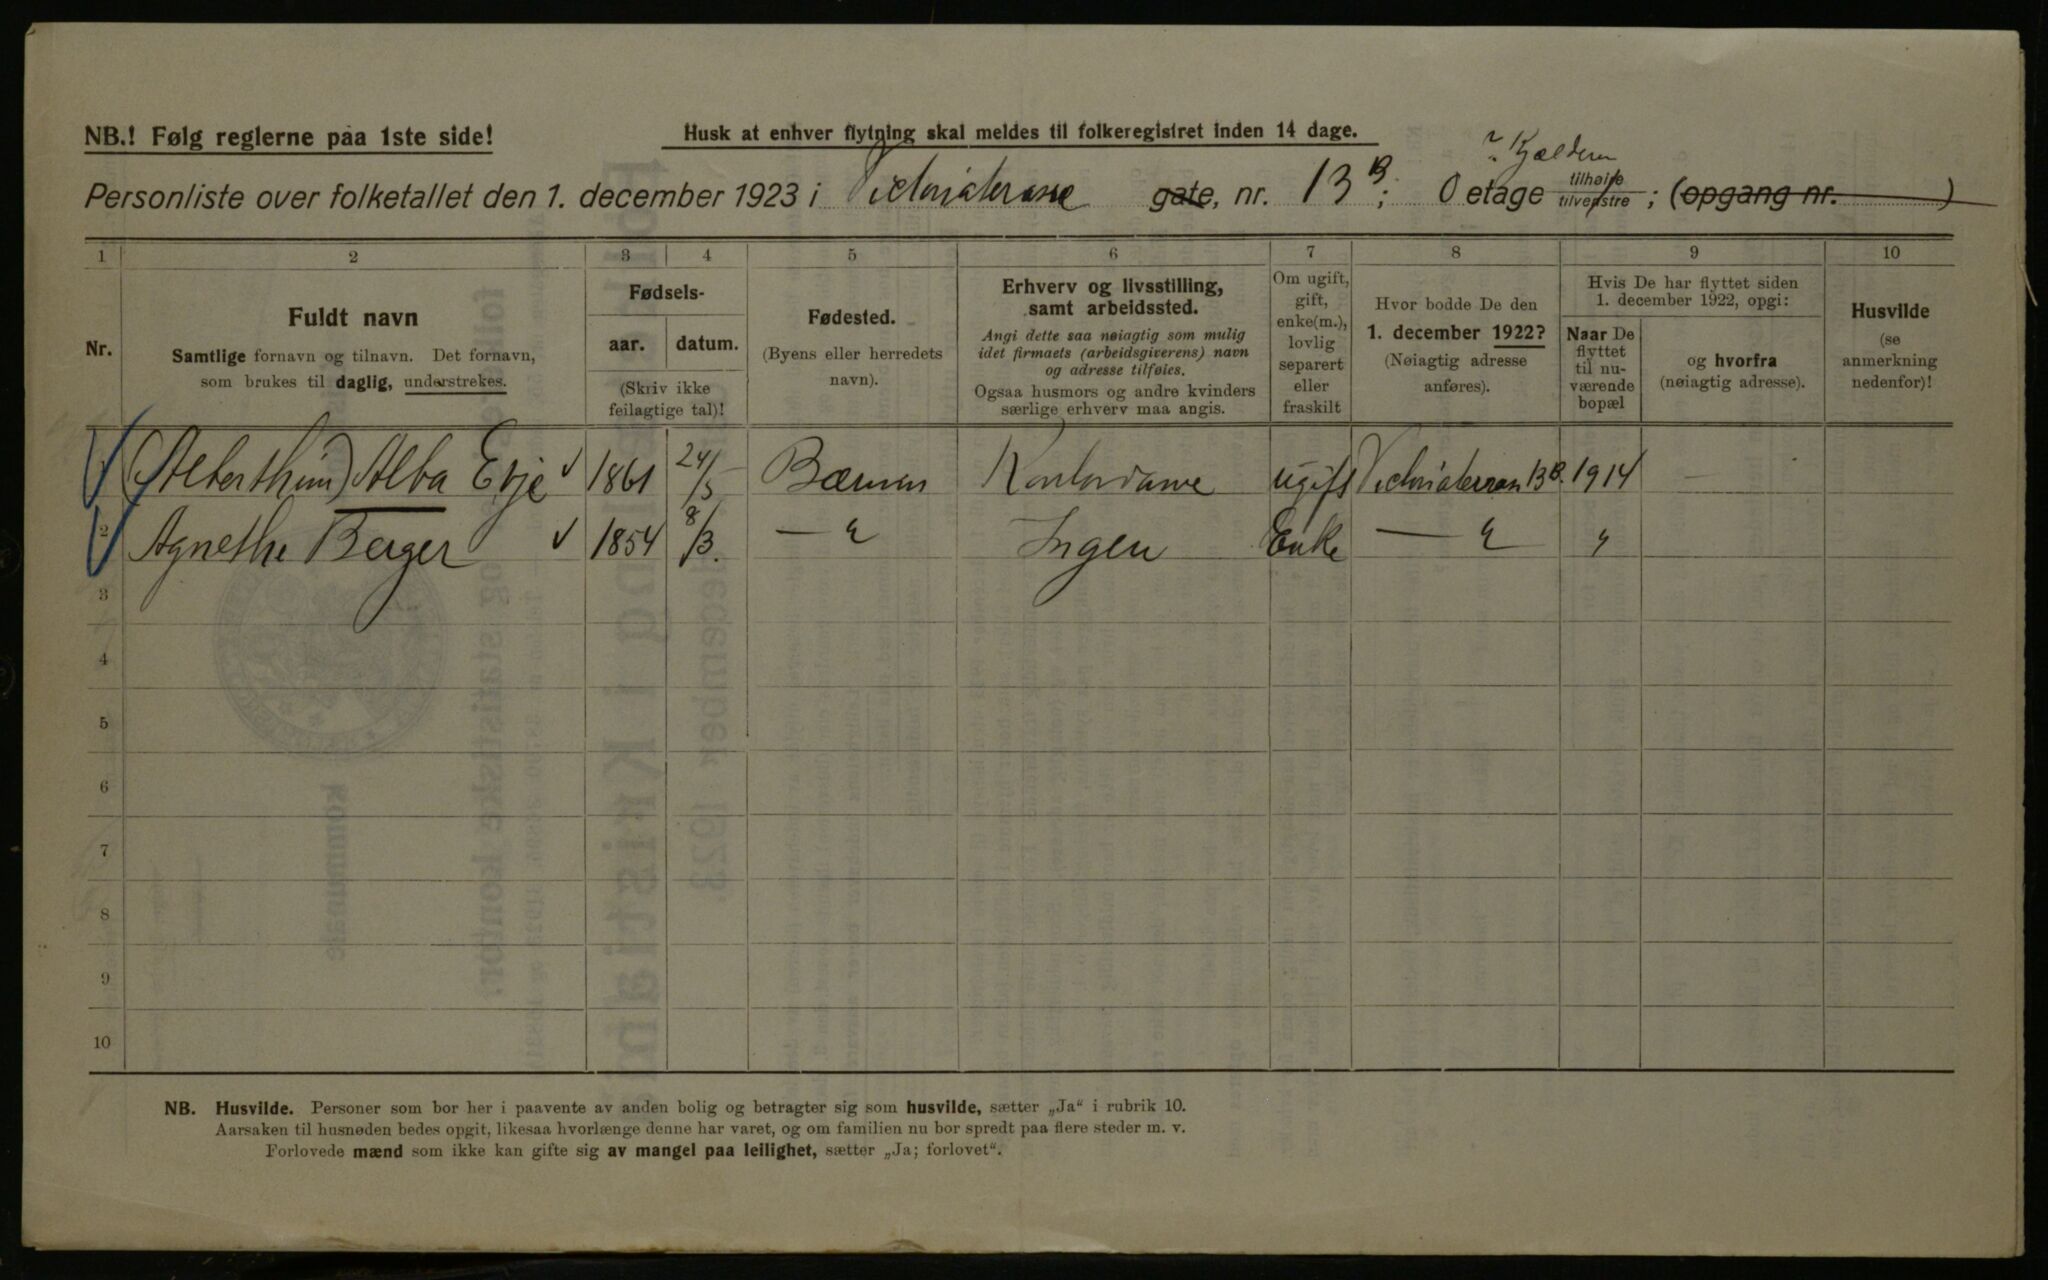 NB.! Følg reglerne paa 1ste side!
Husk at enhver flytning skal meldes til folkeregistret inden 14 dage.
i Kjelderen
Personliste over folketallet den 1. december 1923 i Victoriaterasse gate, nr. 13 B; 0 etage tilhøire tilvenstre; (opgang nr. )
1 2 3 4 5 6 7 8 9 10
Nr.
Fuldt navn
Samtlige fornavn og tilnavn. Det fornavn,
som brukes til daglig, understrekes.
Fødsels-
aar. datum.
(Skriv ikke
feilagtige tal)!
Fødested.
(Byens eller herredets
navn).
Erhverv og livsstilling,
samt arbeidssted.
Angi dette saa nøiagtig som mulig
idet firmaets (arbeidsgiverens) navn
og adresse tilføies.
Ogsaa husmors og andre kvinders
særlige erhverv maa angis.
Om ugift,
gift,
enke(m.),
lovlig
separert
eller
fraskilt
Hvor bodde De den
1. december 1922?
(Nøiagtig adresse
anføres).
Hvis De har flyttet siden
1. december 1922, opgi:
Naar De
flyttet
til nu-
værende
bopæl
og hvorfra
(nøiagtig adresse).
Husvilde
(se
anmerkning
nedenfor)!
(Alberthine) Alba Evje 1861 24/5 Bærum Kontordame ugift Victoriaterrasse 13 B. 1914 —
2 Agnethe Berger 1854 8/3. — " Ingen Enke — " "
3
4
5
6
7
8
9
10
NB. Husvilde. Personer som bor her i paavente av anden bolig og betragter sig som husvilde, sætter „Ja“ i rubrik 10.
Aarsaken til husnøden bedes opgit, likesaa hvorlænge denne har varet, og om familien nu bor spredt paa flere steder m. v.
Forlovede mænd som ikke kan gifte sig av mangel paa leilighet, sætter „Ja; forlovet“.